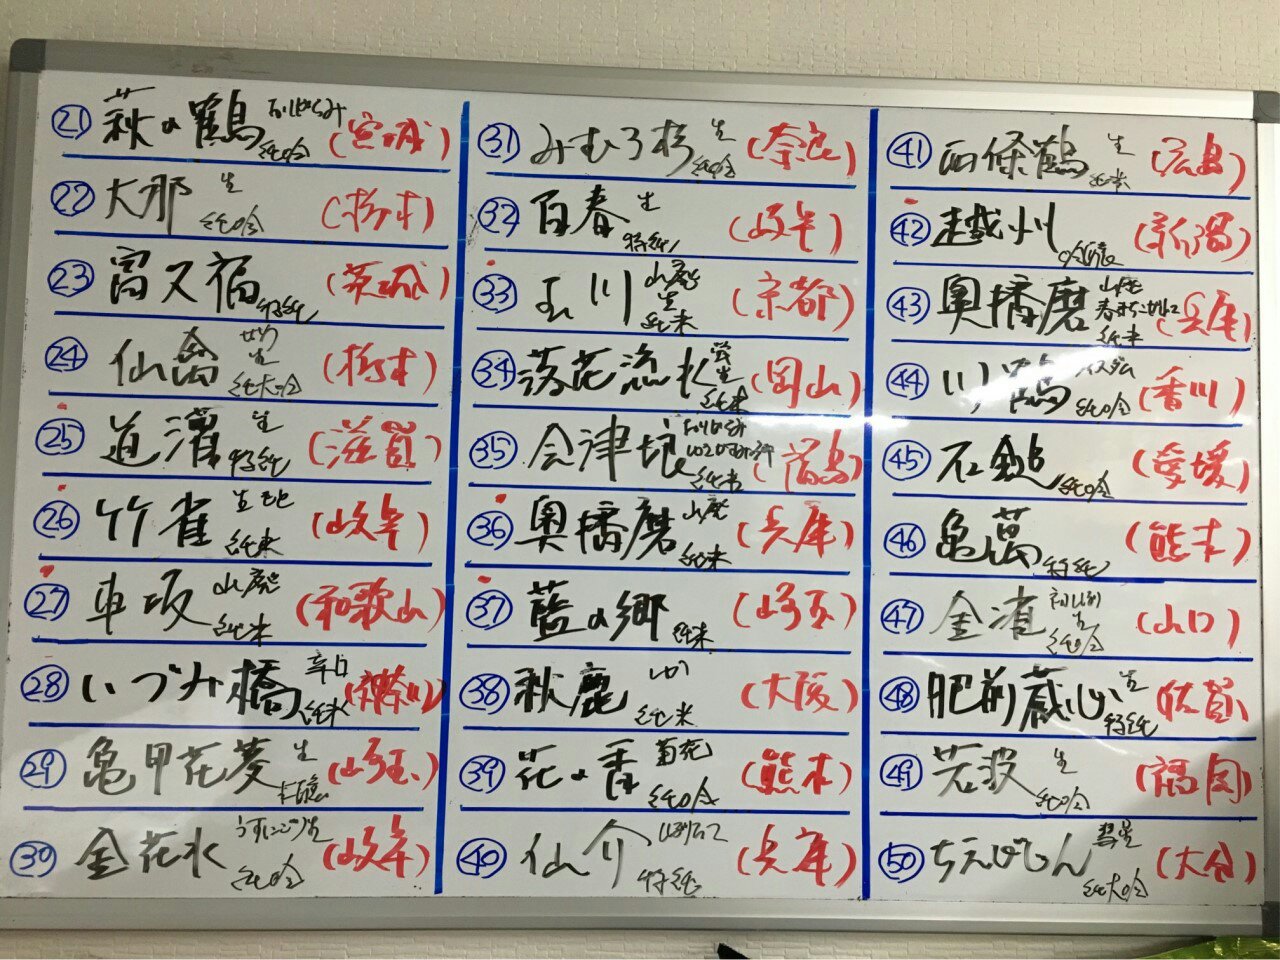 ㉑ 萩の鶴 純吟 (宮城)
㉒ 大那 生 純吟 (栃木)
㉓ 富久福 特純 (茨城)
㉔ 仙禽 生 純大吟 (栃木)
㉕ 道灌 生 特純 (滋賀)
㉖ 竹雀 生 純米 (岐阜)
㉗ 車坂 山廃 純米 (和歌山)
㉘ いづみ橋 辛口 純米 (神奈川)
㉙ 亀甲花菱 生 (埼玉)
㉚ 金花水 うすにごり生 純吟 (岐阜)
㉛ みむろ杉 生 純吟 (奈良)
㉜ 百春 生 特純 (岐阜)
㉝ 玉川 山廃 生 純米 (京都)
㉞ 落花流水 生 純米 (岡山)
㉟ 会津娘 純米 (福島)
㊱ 奥播磨 山廃 純米 (兵庫)
㊲ 藍の郷 純米 (埼玉)
㊳ 秋鹿 純米 (大阪)
㊴ 花の香 菊花 純吟 (熊本)
㊵ 仙介 特純 (兵庫)
㊶ 西條鶴 生 純米 (広島)
㊷ 越州 (新潟)
㊸ 奥播磨 山廃 純米 (兵庫)
㊹ 川鶴 純吟 (香川)
㊺ 石鎚 純吟 (愛媛)
㊻ 亀萬 特純 (熊本)
㊼ 金冠 純吟 (山口)
㊽ 肥前蔵心 生 特純 (佐賀)
㊾ 若波 生 純吟 (福岡)
㊿ ちえびじん 彗星 純大吟 (大分)